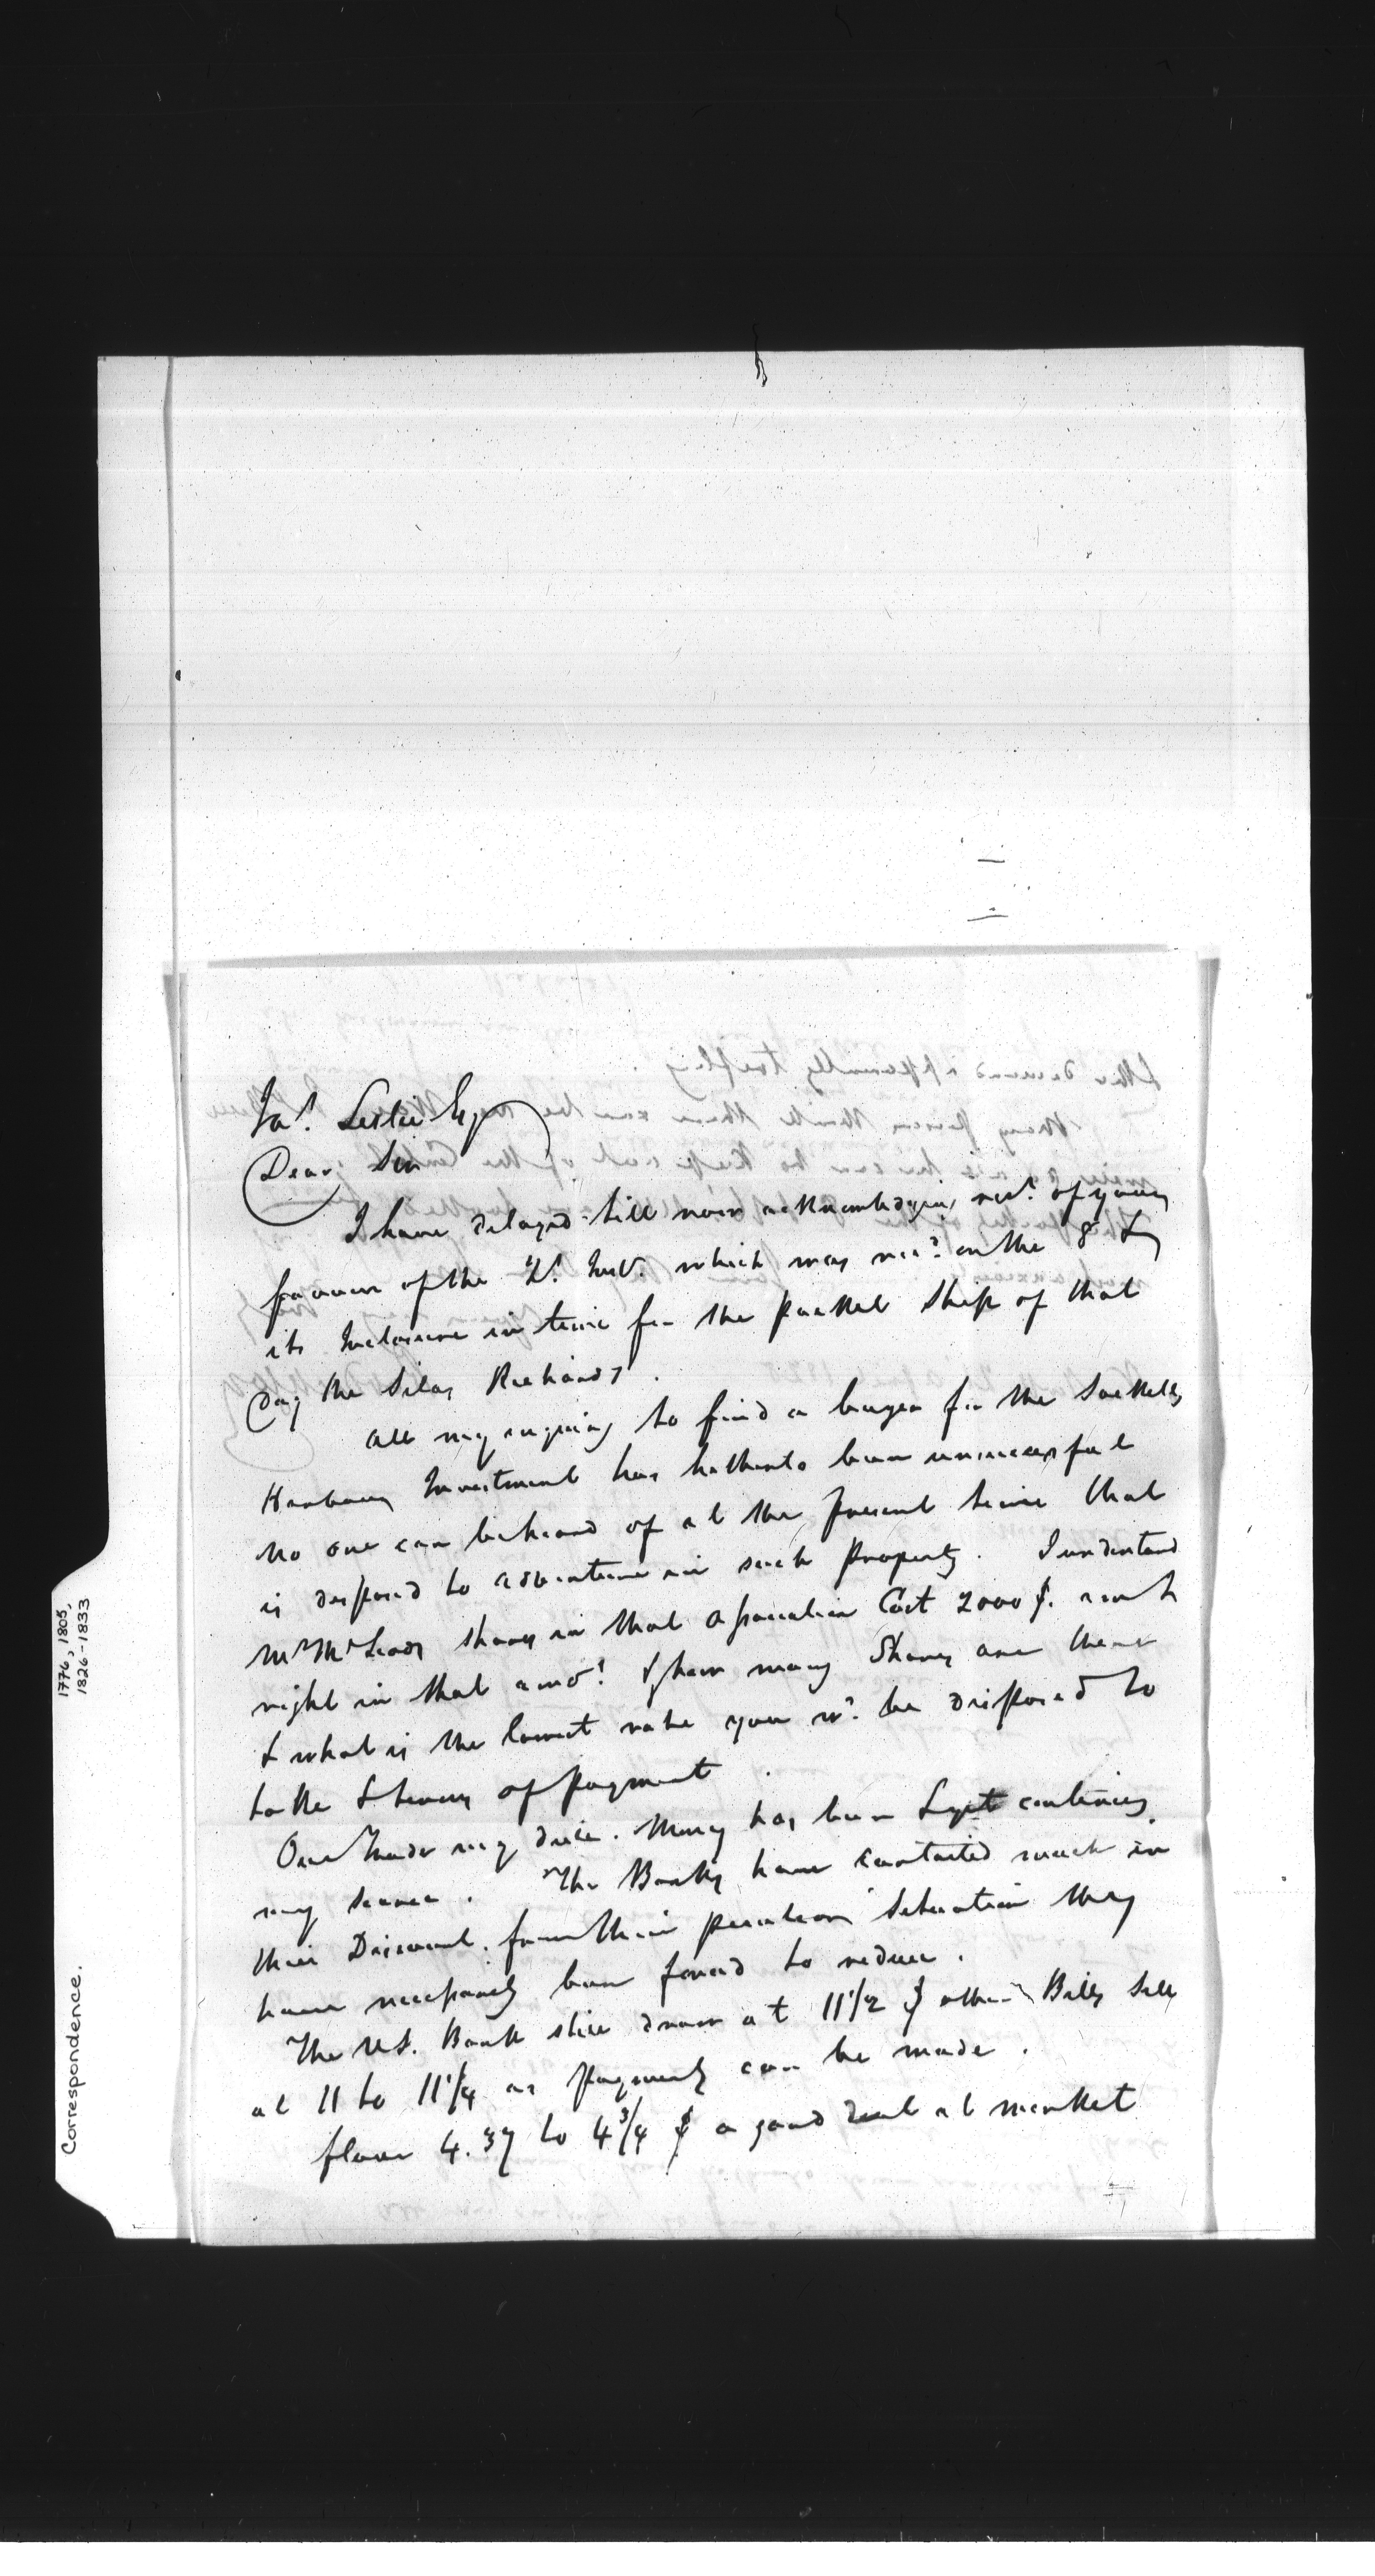 Jas. Leslie Esq
Dear Sir
I have delayed till now acknowledging rect. of your
favour of the 2d. Inst. which was recd. on the 8 &
its Inclosure in time for the packet ship of that
day the Silas Richards.
All my enquiry to find a buyer for the Sacketts
Harbour Investment has hitherto been unsuccessful
No one can be heard of at the present time that
is disposed to adventure in such property. I understand
Mr McLeods shares in that association Cost 2000 $. am I
right in that amot. & how many Shares are there
& what is the lowest rate you wd. be disposed to
take & terms of payment.
Our Trade is dull. Money has been & yet continues
very scarce. The Banks have curtailed much in
their Discount. from their peculiar situation they
have necessarily been forced to reduce.
The U.S. Bank still draw at 11 1/2 & other Bills sell
at 11 to 11 1/4 as payments can be made.
flour 4.37 to 4 3/4 $ a good deal at market
1776, 1805,
1826-1833
Correspondence.